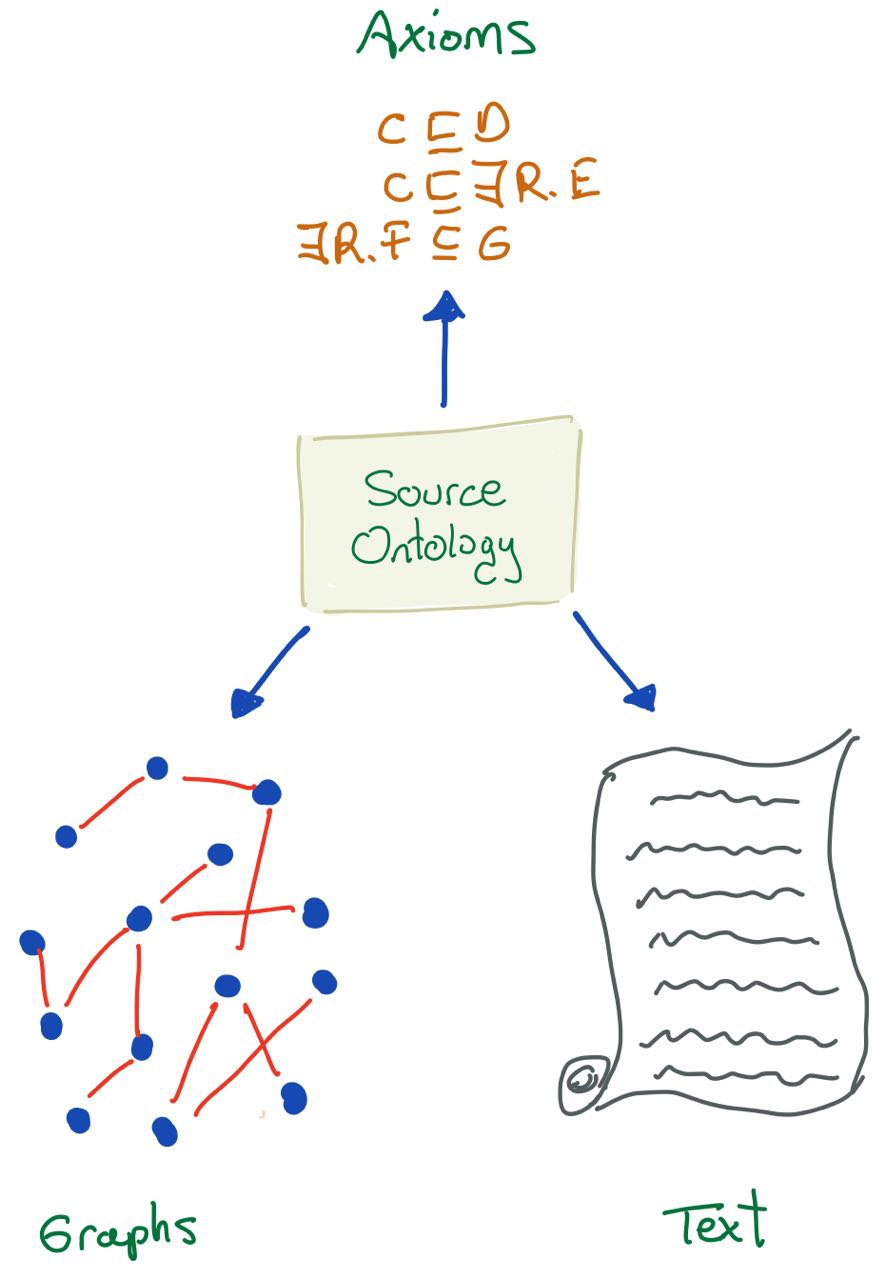 Axioms
C ⊑ D
C ⊑ ∃R.E
∃R.F ⊑ G
Source
Ontology
Graphs
Text